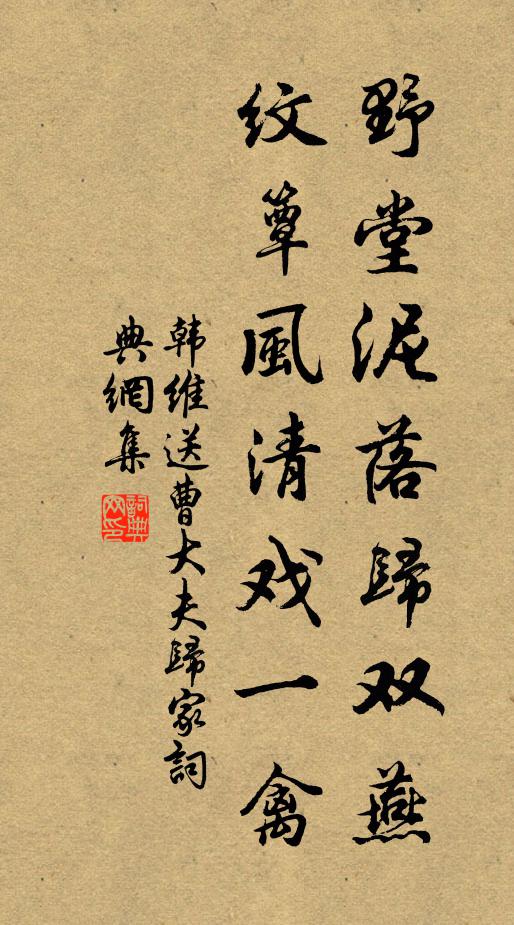 野堂泥落歸双燕
纹簟風清戏一禽
韩維送曹大夫歸家詞
典網集
詞典网印